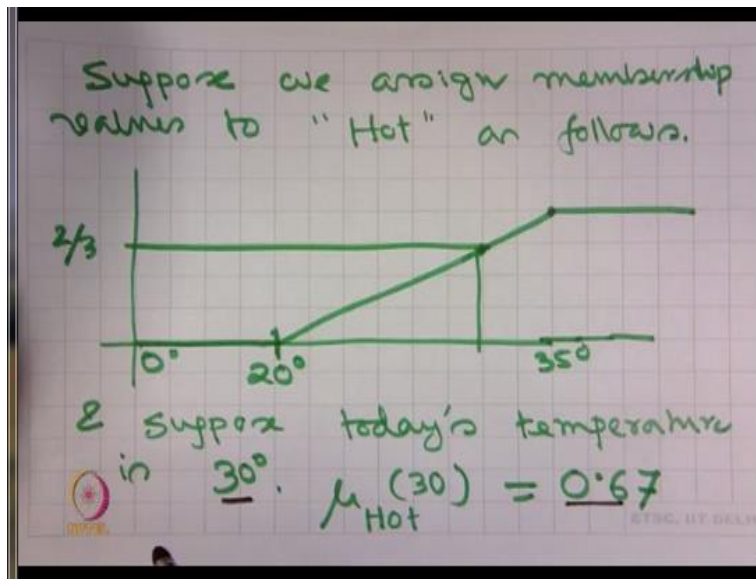 Suppose we assign membership
values to "Hot" as follows.
2/3
0° 20° 35°
& suppose today's temperature
is 30°. μHot(30) = 0.67
NPTEL
ETSC, IIT DELHI